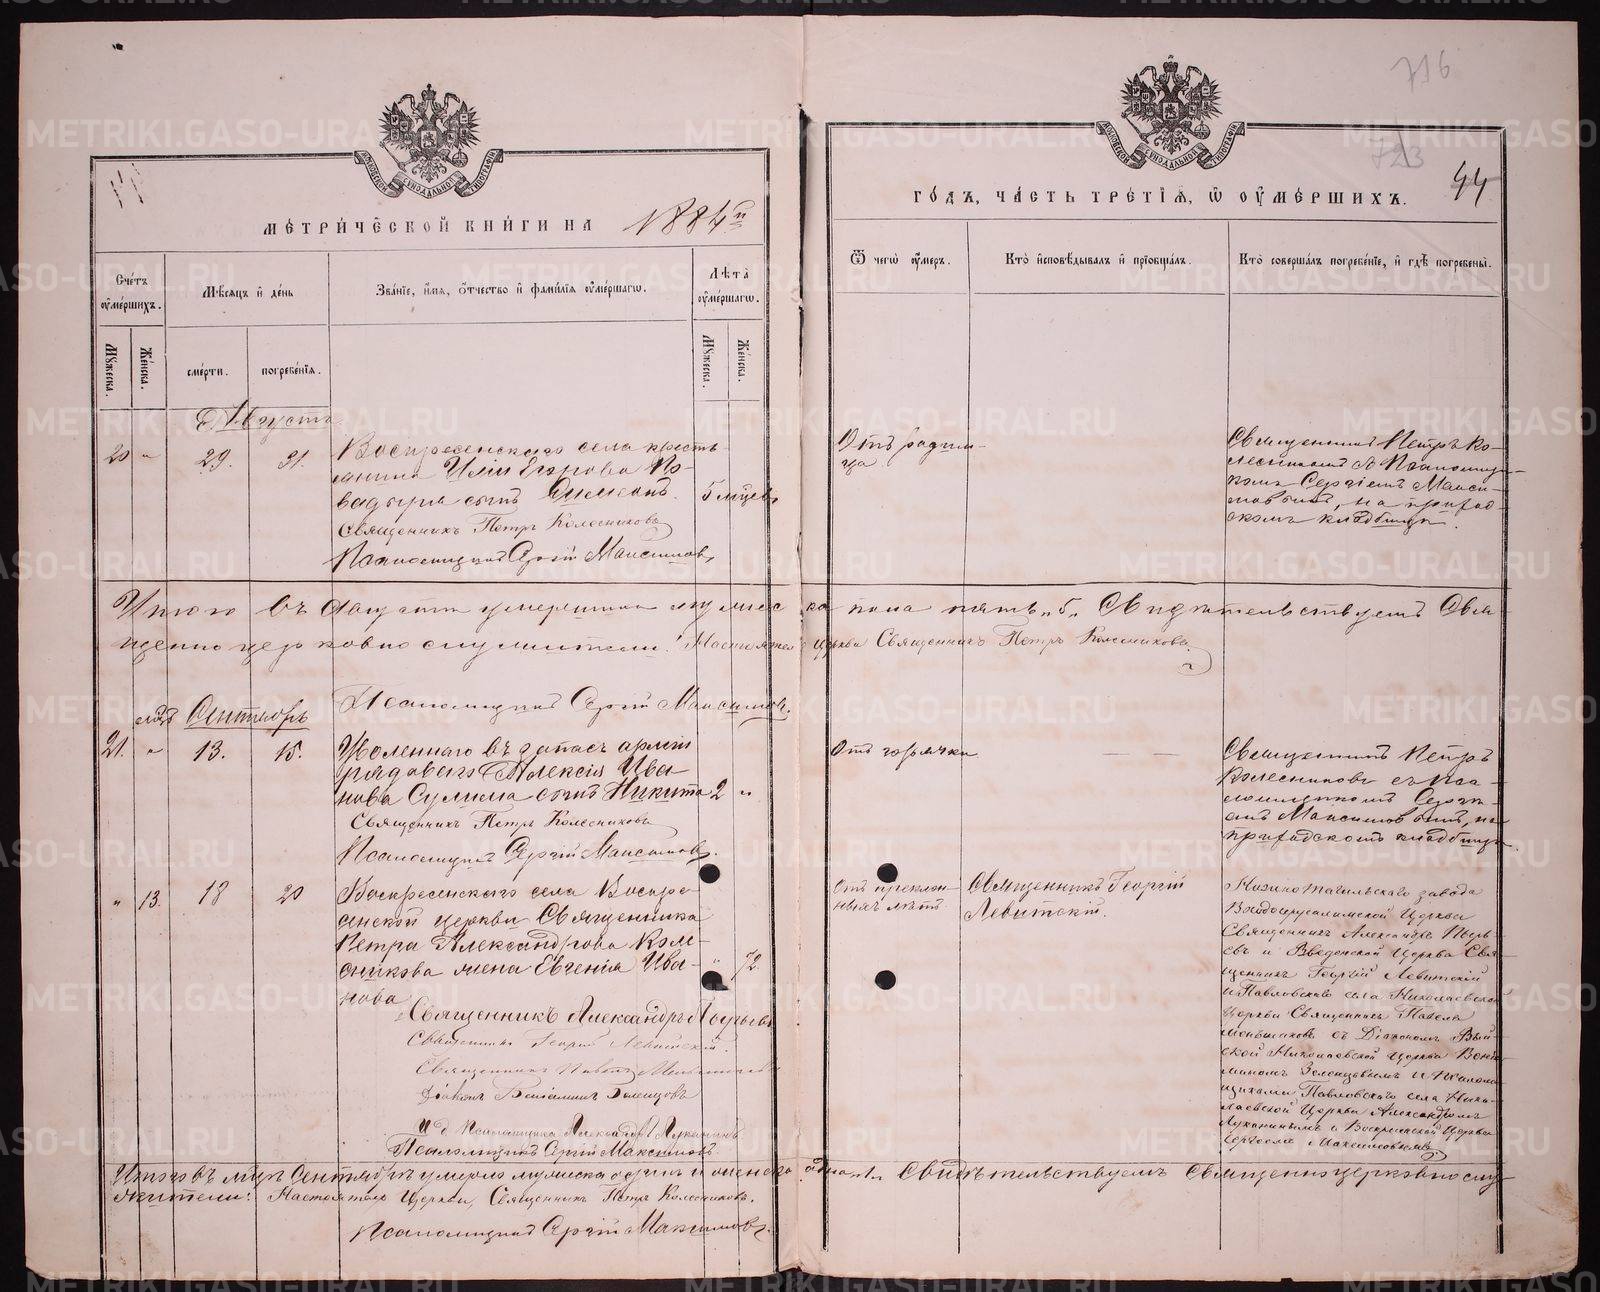 716
723
44
МОСКОВСКОЙ СѴНОДАЛЬНОЙ ТИПОГРАФІИ
МОСКОВСКОЙ СѴНОДАЛЬНОЙ ТИПОГРАФІИ
МЕТРИЧЕСКОЙ КНИГИ НА 1884й
ГОДЪ, ЧАСТЬ ТРЕТІЯ, Ѿ ОУМЕРШИХЪ.
Счетъ оумершихъ.
Мѣсяцъ и день
Званіе, имя, отчество и фамилія оумершагѡ.
Лѣта оумершагѡ.
Ѿ чегѡ оумеръ.
Кто исповѣдывалъ и пріобщалъ.
Кто совершалъ погребеніе, и гдѣ погребены.
Мужеска.
Женска.
смерти.
погребенія.
Мужеска.
Женска.
Августа
20 " 29. 31.
Воскресенскаго села кресть-
янина Иліи Егорова По-
вадыря сынъ Симеонъ. 5 мѣцев
Священникъ Петръ Колесниковъ
Псаломщикъ Сергій Максимовъ
Отъ родим-
ца.
Священникъ Петръ Ко-
лесниковъ съ Псаломщи-
комъ Сергіемъ Макси-
мовымъ, на приход-
скомъ кладбищѣ.
Итого въ Августѣ умершихъ мужеска пола пять "5" Свидѣтельствуемъ Свя-
щенно церковно служители: Настоятель Церкви Священникъ Петръ Колесниковъ
Псаломщикъ Сергій Максимовъ.
мцъ Сентябрь
21. " 13. 15.
Уволеннаго въ запасъ арміи
рядоваго Алексія Ива-
нова Сулима сынъ Никита 2 "
Священникъ Петръ Колесниковъ
Псаломщикъ Сергій Максимовъ.
Отъ горячки
Священникъ Петръ
Колесниковъ съ Пса-
ломщикомъ Серги-
емъ Максимовымъ, на
приходскомъ кладбищѣ.
" 13. 18 20
Воскресенскаго села Воскре-
сенской церкви Священника
Петра Александрова Коле-
сникова жена Евгенія Ива- " 72
нова
Священникъ Александръ
Священникъ Георгій Левитскій.
Священникъ Павелъ Меньшиковъ
Діаконъ Веніаминъ Зеленцовъ
И д Псаломщика Александръ Луканинъ
Псаломщикъ Сергій Максимовъ
Отъ преклон-
ныхъ лѣтъ
Священникъ Георгій
Левитскій.
Нижнетагильскаго завода
Входоіерусалимской Церкви
Священникъ Александръ
и Введенской Церкви Свя-
щенникъ Георгій Левитскій
и Павловскаго села Николаевской
Церкви Священникъ Павелъ
Меньшиковъ съ Діакономъ Вый-
ской Николаевской Церкви Вені-
аминомъ Зеленцовымъ и Псалом-
щиками Павловскаго села Нико-
лаевской Церкви Александромъ
Луканинымъ и Воскресенской Церкви
Сергіемъ Максимовымъ
Итого въ мцѣ Сентябрѣ умерло мужеска одинъ и женска одна "1" Свидѣтельствуемъ Священноцерковнослу-
жители: Настоятель Церкви, Священникъ Петръ Колесниковъ.
Псаломщикъ Сергій Максимовъ.
METRIKI.GASO-URAL.RU